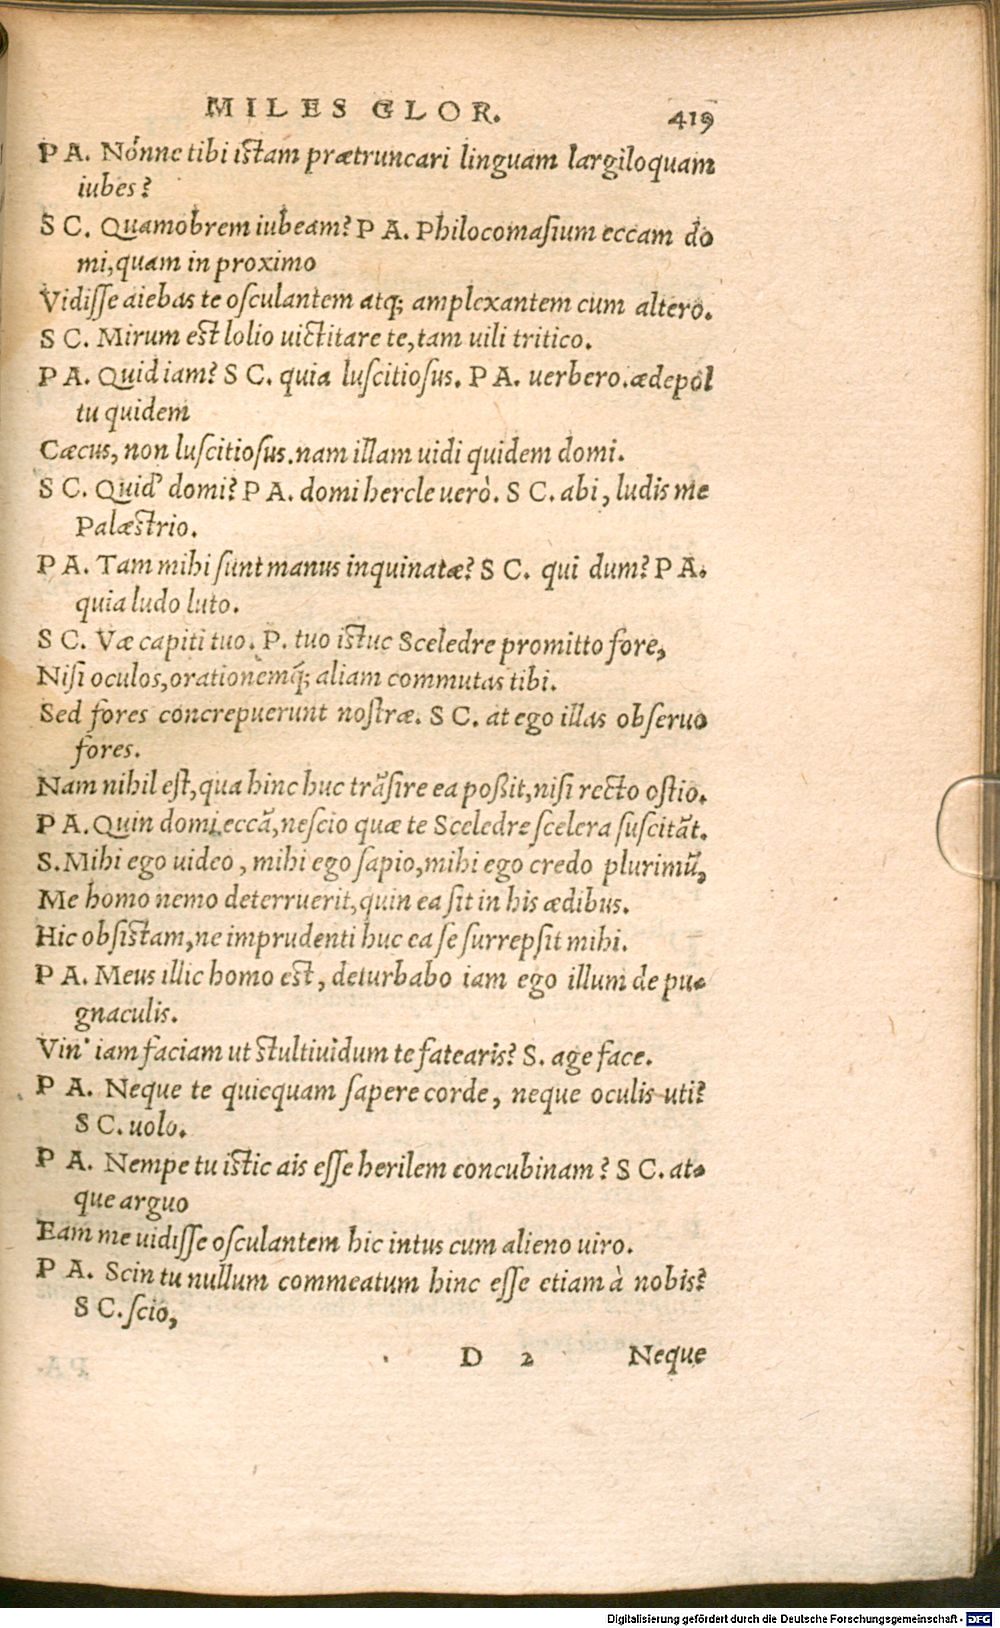 MILES GLOR. 419
P A. Nónne tibi istam prætruncari linguam largiloquam
iubes?
S C. Quamobrem iubeam? P A. Philocomasium eccam do
mi, quam in proximo
Vidisse aiebas te osculantem atq; amplexantem cum altero.
S C. Mirum est lolio uictitare te, tam uili tritico.
P A. Quid iam? S C. quia luscitiosus. P A. uerbero. ædepol
tu quidem
Cæcus, non luscitiosus. nam illam uidi quidem domi.
S C. Quid' domi? P A. domi hercle uerò. S C. abi, ludis me
Palæstrio.
P A. Tam mihi sunt manus inquinatæ? S C. qui dum? P A.
quia ludo luto.
S C. Væ capiti tuo. P. tuo istuc Sceledre promitto fore,
Nisi oculos, orationemq́; aliam commutas tibi.
Sed fores concrepuerunt nostræ. S C. at ego illas obseruo
fores.
Nam nihil est, qua hinc huc trãsire ea poßit, nisi recto ostio.
P A. Quin domi eccã, nescio quæ te Sceledre scelera suscitãt.
S. Mihi ego uideo, mihi ego sapio, mihi ego credo plurimũ,
Me homo nemo deterruerit, quin ea sit in his ædibus.
Hic obsistam, ne imprudenti huc ea se surrepsit mihi.
P A. Meus illic homo est, deturbabo iam ego illum de pu-
gnaculis.
Vin' iam faciam ut stultiuidum te fatearis? S. age face.
P A. Neque te quicquam sapere corde, neque oculis uti?
S C. uolo.
P A. Nempe tu istic ais esse herilem concubinam? S C. at-
que arguo
Eam me uidisse osculantem hic intus cum alieno uiro.
P A. Scin tu nullum commeatum hinc esse etiam à nobis?
S C. scio,
D 2 Neque
Digitalisierung gefördert durch die Deutsche Forschungsgemeinschaft - DFG